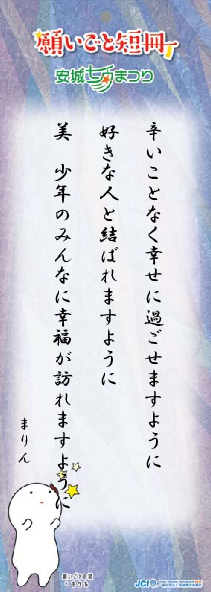 願いごと短冊
安城七夕まつり
辛いことなく幸せに過ごせますように
好きな人と結ばれますように
美 少年のみんなに幸福が訪れますように
まりん
願いごと短冊
JCI